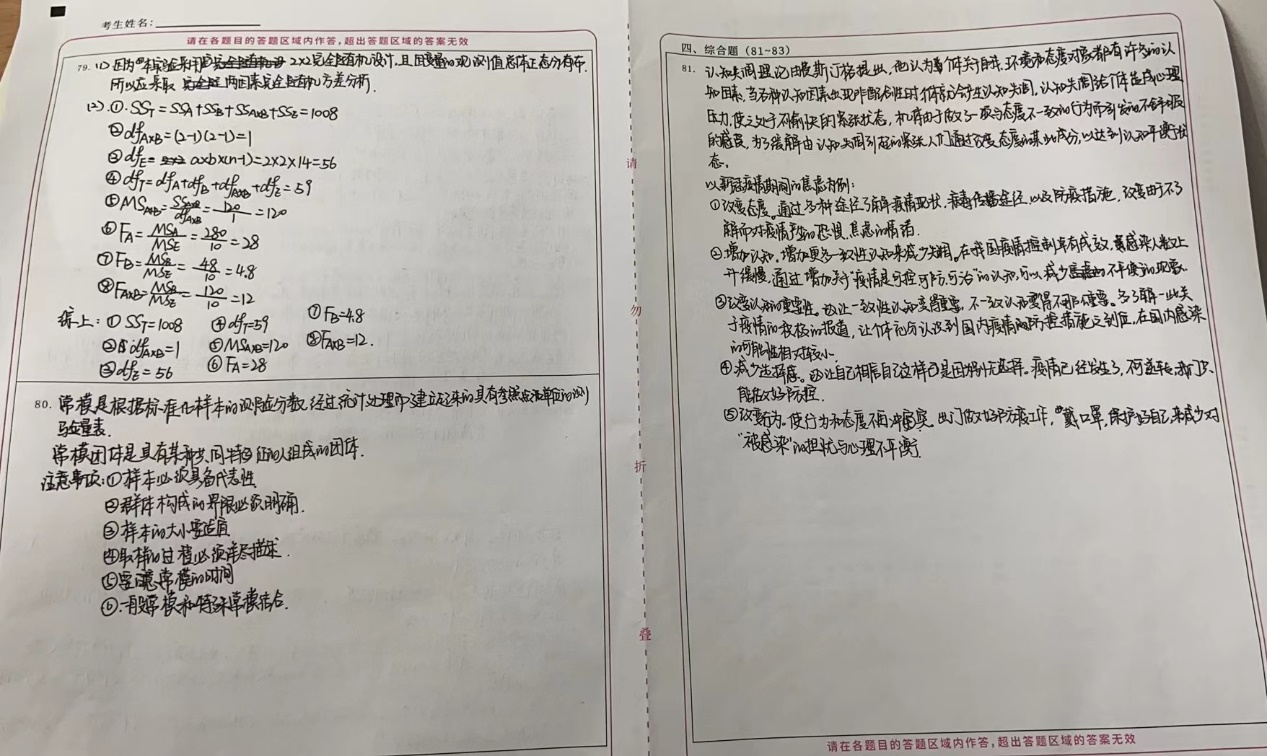 考生姓名:
请在各题目的答题区域内作答,超出答题区域的答案无效
79. (1) 因为本实验采用 2×2完全随机设计,且因变量的观测值总体正态分布,
所以应采取 两因素完全随机方差分析.
(2). ①. SST = SSA + SSB + SSAxB + SSE = 1008
②dfAxB = (2-1)(2-1) = 1
③ dfE = a×b×(n-1) = 2×2×14 = 56
④ dfT = dfA + dfB + dfAxB + dfE = 59
⑤ MSAxB = SSAxB/dfAxB = 120/1 = 120
⑥ FA = MSA/MSE = 280/10 = 28
⑦ FB = MSB/MSE = 48/10 = 4.8
⑧ FAxB = MSB/MSE = 120/10 = 12
综上: ① SST = 1008 ④ dfT = 59 ⑦ FB = 4.8
② dfAxB = 1 ⑤ MSAxB = 120 ⑧ FAxB = 12.
③ dfE = 56 ⑥ FA = 28
80. 常模是根据标准化样本的测验分数,经过统计处理而建立起来的具有参照点和单位的测
验量表.
常模团体是具有某种共同特征的人组成的团体.
注意事项: ① 样本必须具备代表性
② 群体构成的界限必须明确.
③ 样本的大小要适宜
④ 取样的过程必须详尽描述.
⑤ 要注意常模的时间
⑥. 一般常模和特殊常模结合.
请
勿
折
叠
四、综合题(81~83)
81. 认知失调理论由费斯汀格提出,他认为每个体关于自我、环境和态度对像都有许多的认
知因素,当各种认知因素出现非配合性时,个体就会产生认知失调,认知失调给个体造成心理
压力,使之处于不愉快的紧张状态,机将由于做了一项与态度不一致的行为而引发的不舒服
的感觉,为了缓解由认知失调引起的紧张人们通过改变态度的某些成分,以达到认知平衡状
态。
以新冠疫情期间的焦虑为例:
①改变态度。通过多种途径了解疫情现状,病毒传播途径以及防疫措施,改变由于不了
解而对疫情产生的恐惧、焦虑的情绪.
②增加认知。增加更多一致性认知来减少失调。在我国疫情控制卓有成效,感染人数上
升缓慢,通过增加关于“疫情是可控可防可治”的认知,可以减少不平衡的现象.
③改变认知的重要性。让一致性认知变得重要,不一致认知变得不那么重要。多了解一些关
于疫情的积极的报道,让个体充分认识到国内疫情的防控措施之到位,在国内感染
的可能性相对较小.
④ 减少选择感。让自己相信自己这样做是因为别无选择。疫情已经发生了,不可逆转,我们只
能做好防控.
⑤ 改变行为。使行为和态度不再冲突。出门做好防疫工作,戴口罩,保护好自己,来减少对
“被感染”的担忧与心理不平衡.
请在各题目的答题区域内作答,超出答题区域的答案无效